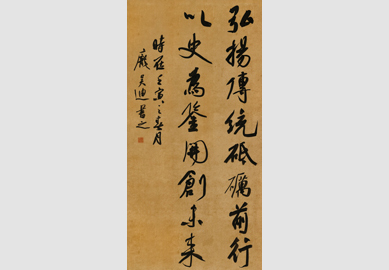 弘揚傳統砥礪前行
以史為鑒開創未来
時在壬寅之春月
嚴文迪書之